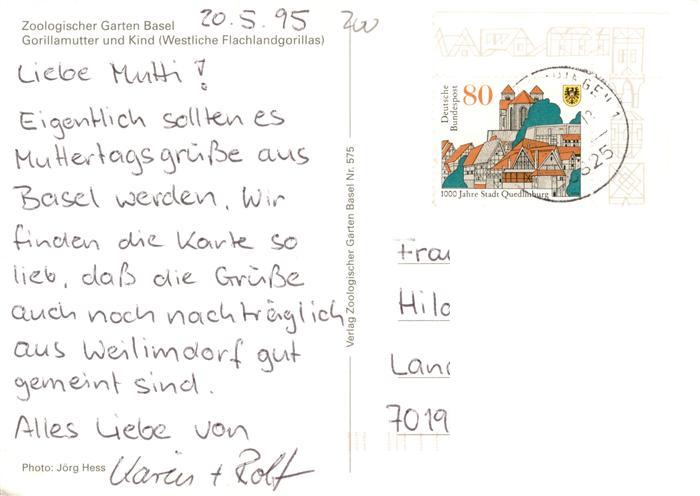 Zoologischer Garten Basel
Gorillamutter und Kind (Westliche Flachlandgorillas)
20.5.95
Liebe Mutti!
Eigentlich sollten es
Muttertagsgrüße aus
Basel werden. Wir
finden die Karte so
lieb, daß die Grüße
auch noch nachträglich
aus Weilimdorf gut
gemeint sind.
Alles Liebe von
Karin + Rolf
Photo: Jörg Hess
Verlag Zoologischer Garten Basel Nr. 575
Deutsche
Bundespost
80
1000 Jahre Stadt Quedlinburg
Frau
Hild
Land
7019